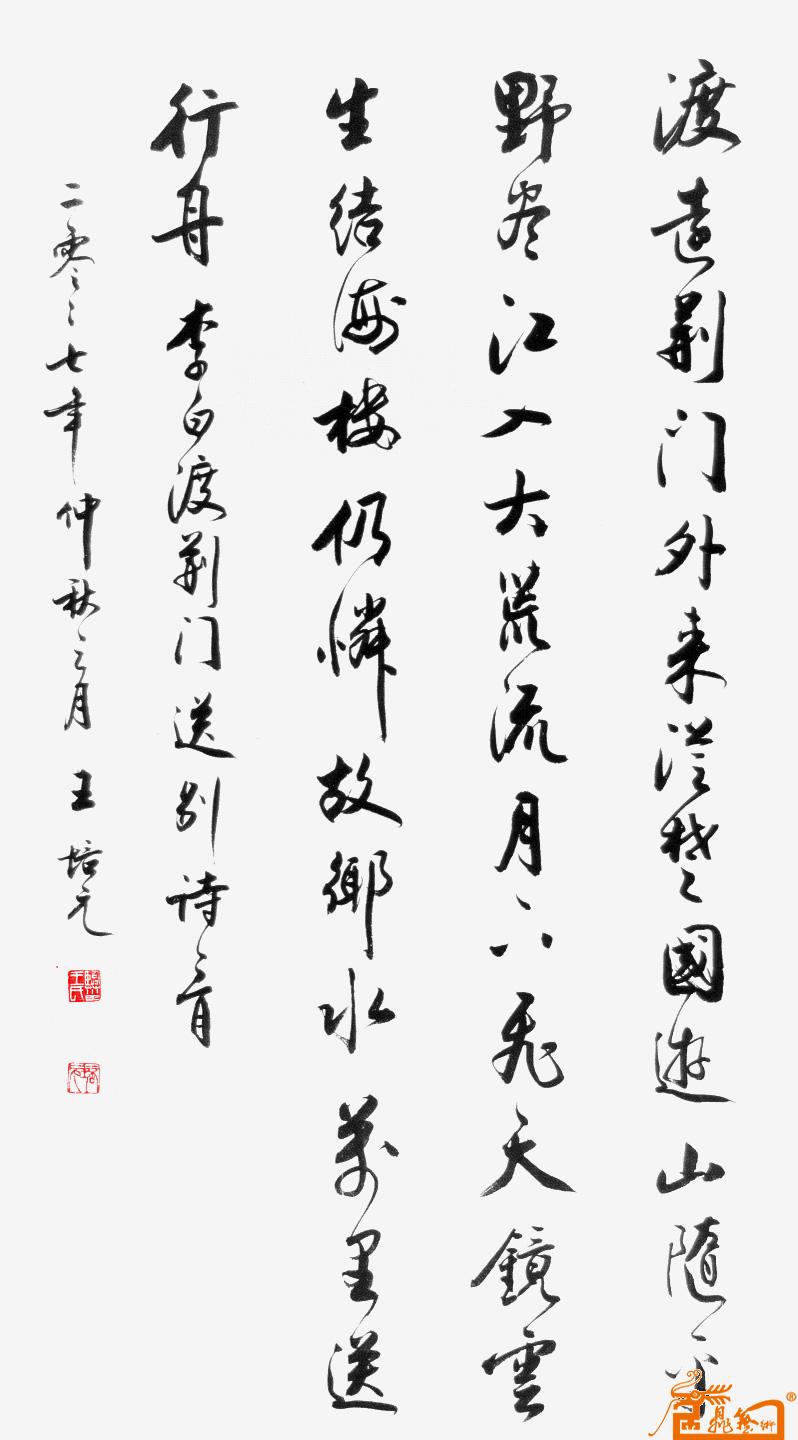 渡远荆门外来從楚国遊山隨平
野尽江入大荒流月下飛天鏡雲
生结海楼仍憐故鄉水萬里送
行舟 李白渡荆门送别诗一首
二零零七年仲秋之月 王培元
鼎藝術